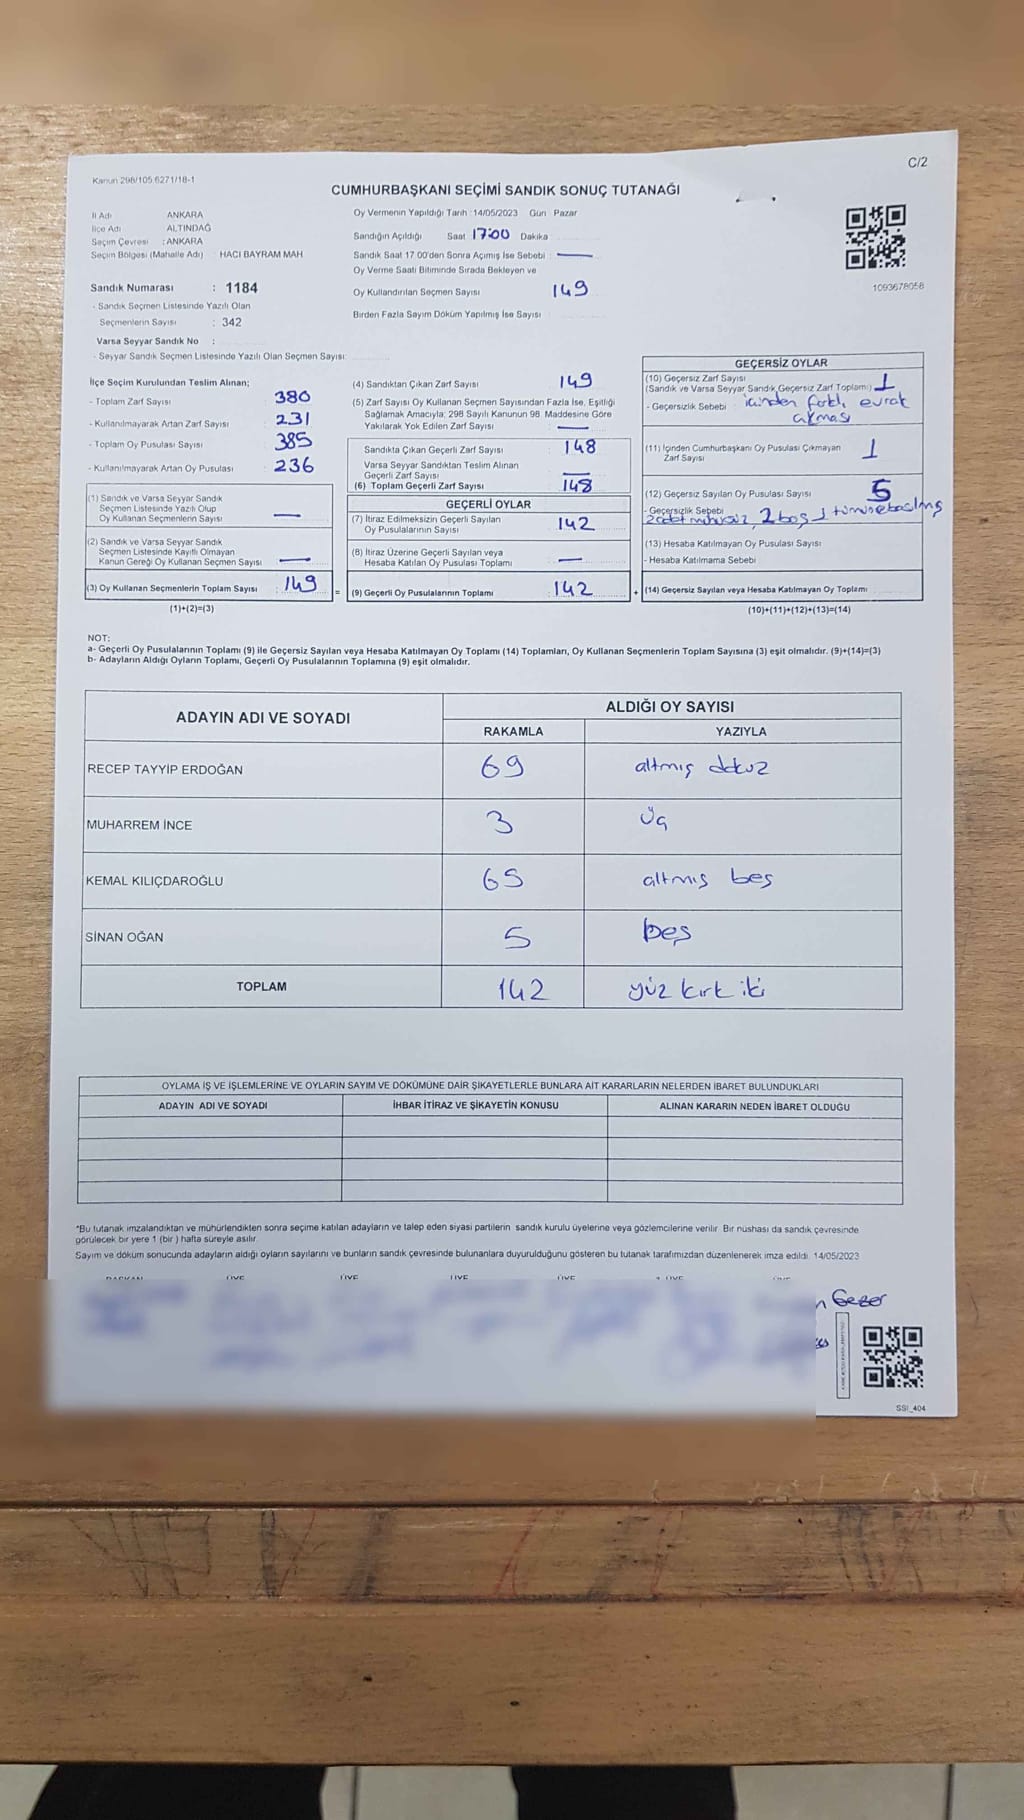 C/2
Kanun 298/105 6271/18-1
CUMHURBAŞKANI SEÇİMİ SANDIK SONUÇ TUTANAĞI
İl Adı ANKARA
İlçe Adı ALTINDAĞ
Seçim Çevresi : ANKARA
Seçim Bölgesi (Mahalle Adı) : HACI BAYRAM MAH.
Sandık Numarası : 1184
- Sandık Seçmen Listesinde Yazılı Olan
Seçmenlerin Sayısı : 342
Varsa Seyyar Sandık No :
- Seyyar Sandık Seçmen Listesinde Yazılı Olan Seçmen Sayısı:
Oy Vermenin Yapıldığı Tarih :14/05/2023 Gün Pazar
Sandığın Açıldığı Saat 17:00 Dakika
Sandık Saat 17 00'den Sonra Açımış İse Sebebi : —
Oy Verme Saati Bitiminde Sırada Bekleyen ve
Oy Kullandırılan Seçmen Sayısı 149
Birden Fazla Sayım Döküm Yapılmış İse Sayısı
1093678058
İlçe Seçim Kurulundan Teslim Alınan;
- Toplam Zarf Sayısı 380
- Kullanılmayarak Artan Zarf Sayısı 231
- Toplam Oy Pusulası Sayısı 385
- Kullanılmayarak Artan Oy Pusulası 236
(1) Sandık ve Varsa Seyyar Sandık
Seçmen Listesinde Yazılı Olup
Oy Kullanan Seçmenlerin Sayısı —
(2) Sandık ve Varsa Seyyar Sandık
Seçmen Listesinde Kayıtlı Olmayan
Kanun Gereği Oy Kullanan Seçmen Sayısı —
(3) Oy Kullanan Seçmenlerin Toplam Sayısı 149
(1)+(2)=(3)
(4) Sandıktan Çıkan Zarf Sayısı 149
(5) Zarf Sayısı Oy Kullanan Seçmen Sayısından Fazla İse, Eşitliği
Sağlamak Amacıyla; 298 Sayılı Kanunun 98. Maddesine Göre
Yakılarak Yok Edilen Zarf Sayısı —
Sandıkta Çıkan Geçerli Zarf Sayısı 148
Varsa Seyyar Sandıktan Teslim Alınan
Geçerli Zarf Sayısı —
(6) Toplam Geçerli Zarf Sayısı 148
GEÇERLİ OYLAR
(7) İtiraz Edilmeksizin Geçerli Sayılan
Oy Pusulalarının Sayısı 142
(8) İtiraz Üzerine Geçerli Sayılan veya
Hesaba Katılan Oy Pusulası Toplamı —
= (9) Geçerli Oy Pusulalarının Toplamı 142 +
GEÇERSİZ OYLAR
(10) Geçersiz Zarf Sayısı
(Sandık ve Varsa Seyyar Sandık Geçersiz Zarf Toplamı) 1
- Geçersizlik Sebebi : içinden farklı evrak
çıkması
(11) İçinden Cumhurbaşkanı Oy Pusulası Çıkmayan
Zarf Sayısı 1
(12) Geçersiz Sayılan Oy Pusulası Sayısı 5
- Geçersizlik Sebebi
2 adet mühürsüz, 2 boş 1 tümüne basılmış
(13) Hesaba Katılmayan Oy Pusulası Sayısı
- Hesaba Katılmama Sebebi
(14) Geçersiz Sayılan veya Hesaba Katılmayan Oy Toplamı
(10)+(11)+(12)+(13)=(14)
NOT:
a- Geçerli Oy Pusulalarının Toplamı (9) ile Geçersiz Sayılan veya Hesaba Katılmayan Oy Toplamı (14) Toplamları, Oy Kullanan Seçmenlerin Toplam Sayısına (3) eşit olmalıdır. (9)+(14)=(3)
b- Adayların Aldığı Oyların Toplamı, Geçerli Oy Pusulalarının Toplamına (9) eşit olmalıdır.
ADAYIN ADI VE SOYADI
ALDIĞI OY SAYISI
RAKAMLA YAZIYLA
RECEP TAYYİP ERDOĞAN 69 altmış dokuz
MUHARREM İNCE 3 üç
KEMAL KILIÇDAROĞLU 65 altmış beş
SİNAN OĞAN 5 beş
TOPLAM 142 yüz kırk iki
OYLAMA İŞ VE İŞLEMLERİNE VE OYLARIN SAYIM VE DÖKÜMÜNE DAİR ŞİKAYETLERLE BUNLARA AİT KARARLARIN NELERDEN İBARET BULUNDUKLARI
ADAYIN ADI VE SOYADI İHBAR İTİRAZ VE ŞİKAYETİN KONUSU ALINAN KARARIN NEDEN İBARET OLDUĞU
*Bu tutanak imzalandıktan ve mühürlendikten sonra seçime katılan adayların ve talep eden siyasi partilerin sandık kurulu üyelerine veya gözlemcilerine verilir. Bir nüshası da sandık çevresinde
görülecek bir yere 1 (bir ) hafta süreyle asılır.
Sayım ve döküm sonucunda adayların aldığı oyların sayılarını ve bunların sandık çevresinde bulunanlara duyurulduğunu gösteren bu tutanak tarafımızdan düzenlenerek imza edildi. 14/05/2023
BAŞKAN ÜYE ÜYE ÜYE ÜYE ÜYE
Gezer
SSI_404